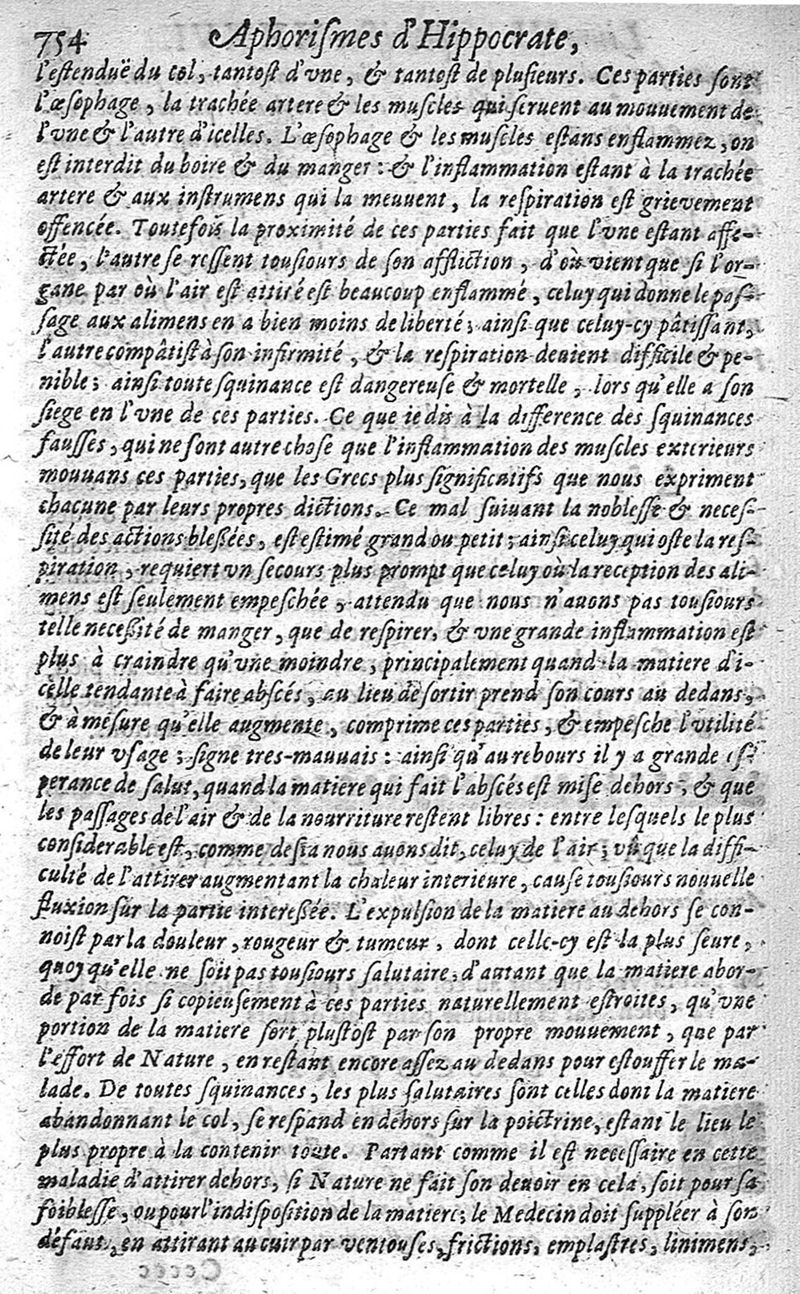 754 Aphoriſmes d'Hippocrate,
l'eſtenduë du col, tantoſt d'vne, & tantoſt de pluſieurs. Ces parties ſont
l'œſophage, la trachée artere & les muſcles qui ſeruent au mouuement de
l'vne & l'autre d'icelles. L'œſophage & les muſcles eſtans enflammez, on
eſt interdit du boire & du manger : & l'inflammation eſtant à la trachée
artere & aux inſtrumens qui la meuuent, la reſpiration eſt grievement
offencée. Toutefois la proximité de ces parties fait que l'vne eſtant affe-
ctée, l'autre ſe reſſent touſiours de ſon affliction, d'où vient que ſi l'or-
gane par où l'air eſt attiré eſt beaucoup enflammé, celuy qui donne le paſ-
ſage aux alimens en a bien moins de liberté ; ainſi que celuy-cy pâtiſſant,
l'autre compâtiſt à ſon infirmité, & la reſpiration deuient difficile & pe-
nible ; ainſi toute ſquinance eſt dangereuſe & mortelle, lors qu'elle a ſon
ſiege en l'vne de ces parties. Ce que ie dis à la difference des ſquinances
fauſſes, qui ne ſont autre choſe que l'inflammation des muſcles exterieurs
mouuans ces parties, que les Grecs plus ſignificatifs que nous expriment
chacune par leurs propres dictions. Ce mal ſuiuant la nobleſſe & neceſ-
ſité des actions bleßées, eſt eſtimé grand ou petit ; ainſi celuy qui oſte la reſ-
piration, requiert vn ſecours plus prompt que celuy où la reception des ali-
mens eſt ſeulement empeſchée, attendu que nous n'auons pas touſiours
telle neceßité de manger, que de reſpirer, & vne grande inflammation eſt
plus à craindre qu'vne moindre, principalement quand la matiere d'i-
celle tendante à faire abſcés, au lieu de ſortir prend ſon cours au dedans,
& à meſure qu'elle augmente, comprime ces parties, & empeſche l'vtilité
de leur vſage ; ſigne tres-mauuais : ainſi qu'au rebours il y a grande eſ-
perance de ſalut, quand la matiere qui fait l'abſcés eſt miſe dehors, & que
les paſſages de l'air & de la nourriture reſtent libres : entre leſquels le plus
conſiderable eſt, comme deſia nous auons dit, celuy de l'air ; vû que la diffi-
culté de l'attirer augmentant la chaleur interieure, cauſe touſiours nouuelle
fluxion ſur la partie intereßée. L'expulſion de la matiere au dehors ſe con-
noiſt par la douleur, rougeur & tumeur, dont celle-cy eſt la plus ſeure,
quoy qu'elle ne ſoit pas touſiours ſalutaire ; d'autant que la matiere abor-
de par fois ſi copieuſement à ces parties naturellement eſtroites, qu'vne
portion de la matiere ſort pluſtoſt par ſon propre mouuement, que par
l'effort de Nature, en reſtant encore aſſez au dedans pour eſtouffer le ma-
lade. De toutes ſquinances, les plus ſalutaires ſont celles dont la matiere
abandonnant le col, ſe reſpand en dehors ſur la poictrine, eſtant le lieu le
plus propre à la contenir toute. Partant comme il eſt neceſſaire en cette
maladie d'attirer dehors, ſi Nature ne fait ſon deuoir en cela, ſoit pour ſa
foibleſſe, ou pour l'indiſpoſition de la matiere ; le Medecin doit ſuppléer à ſon
défaut, en attirant au cuir par ventouſes, frictions, emplaſtres, linimens,